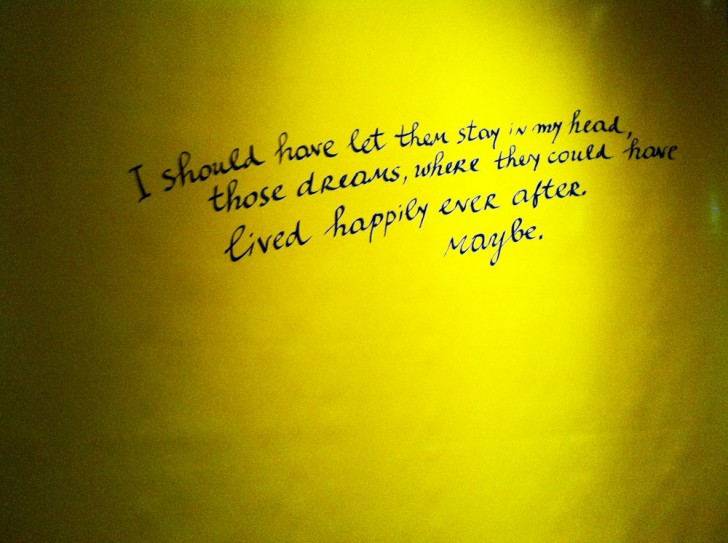 I should have let them stay in my head,
those dreams, where they could have
lived happily ever after.
Maybe.